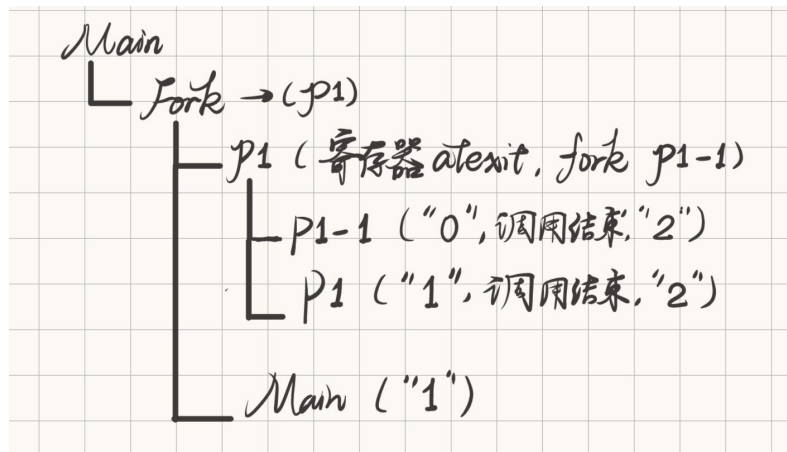 Main
Fork → (P1)
P1 (寄存器 atexit, fork P1-1)
P1-1 ("0", 调用结束, "2")
P1 ("1", 调用结束, "2")
Main ("1")